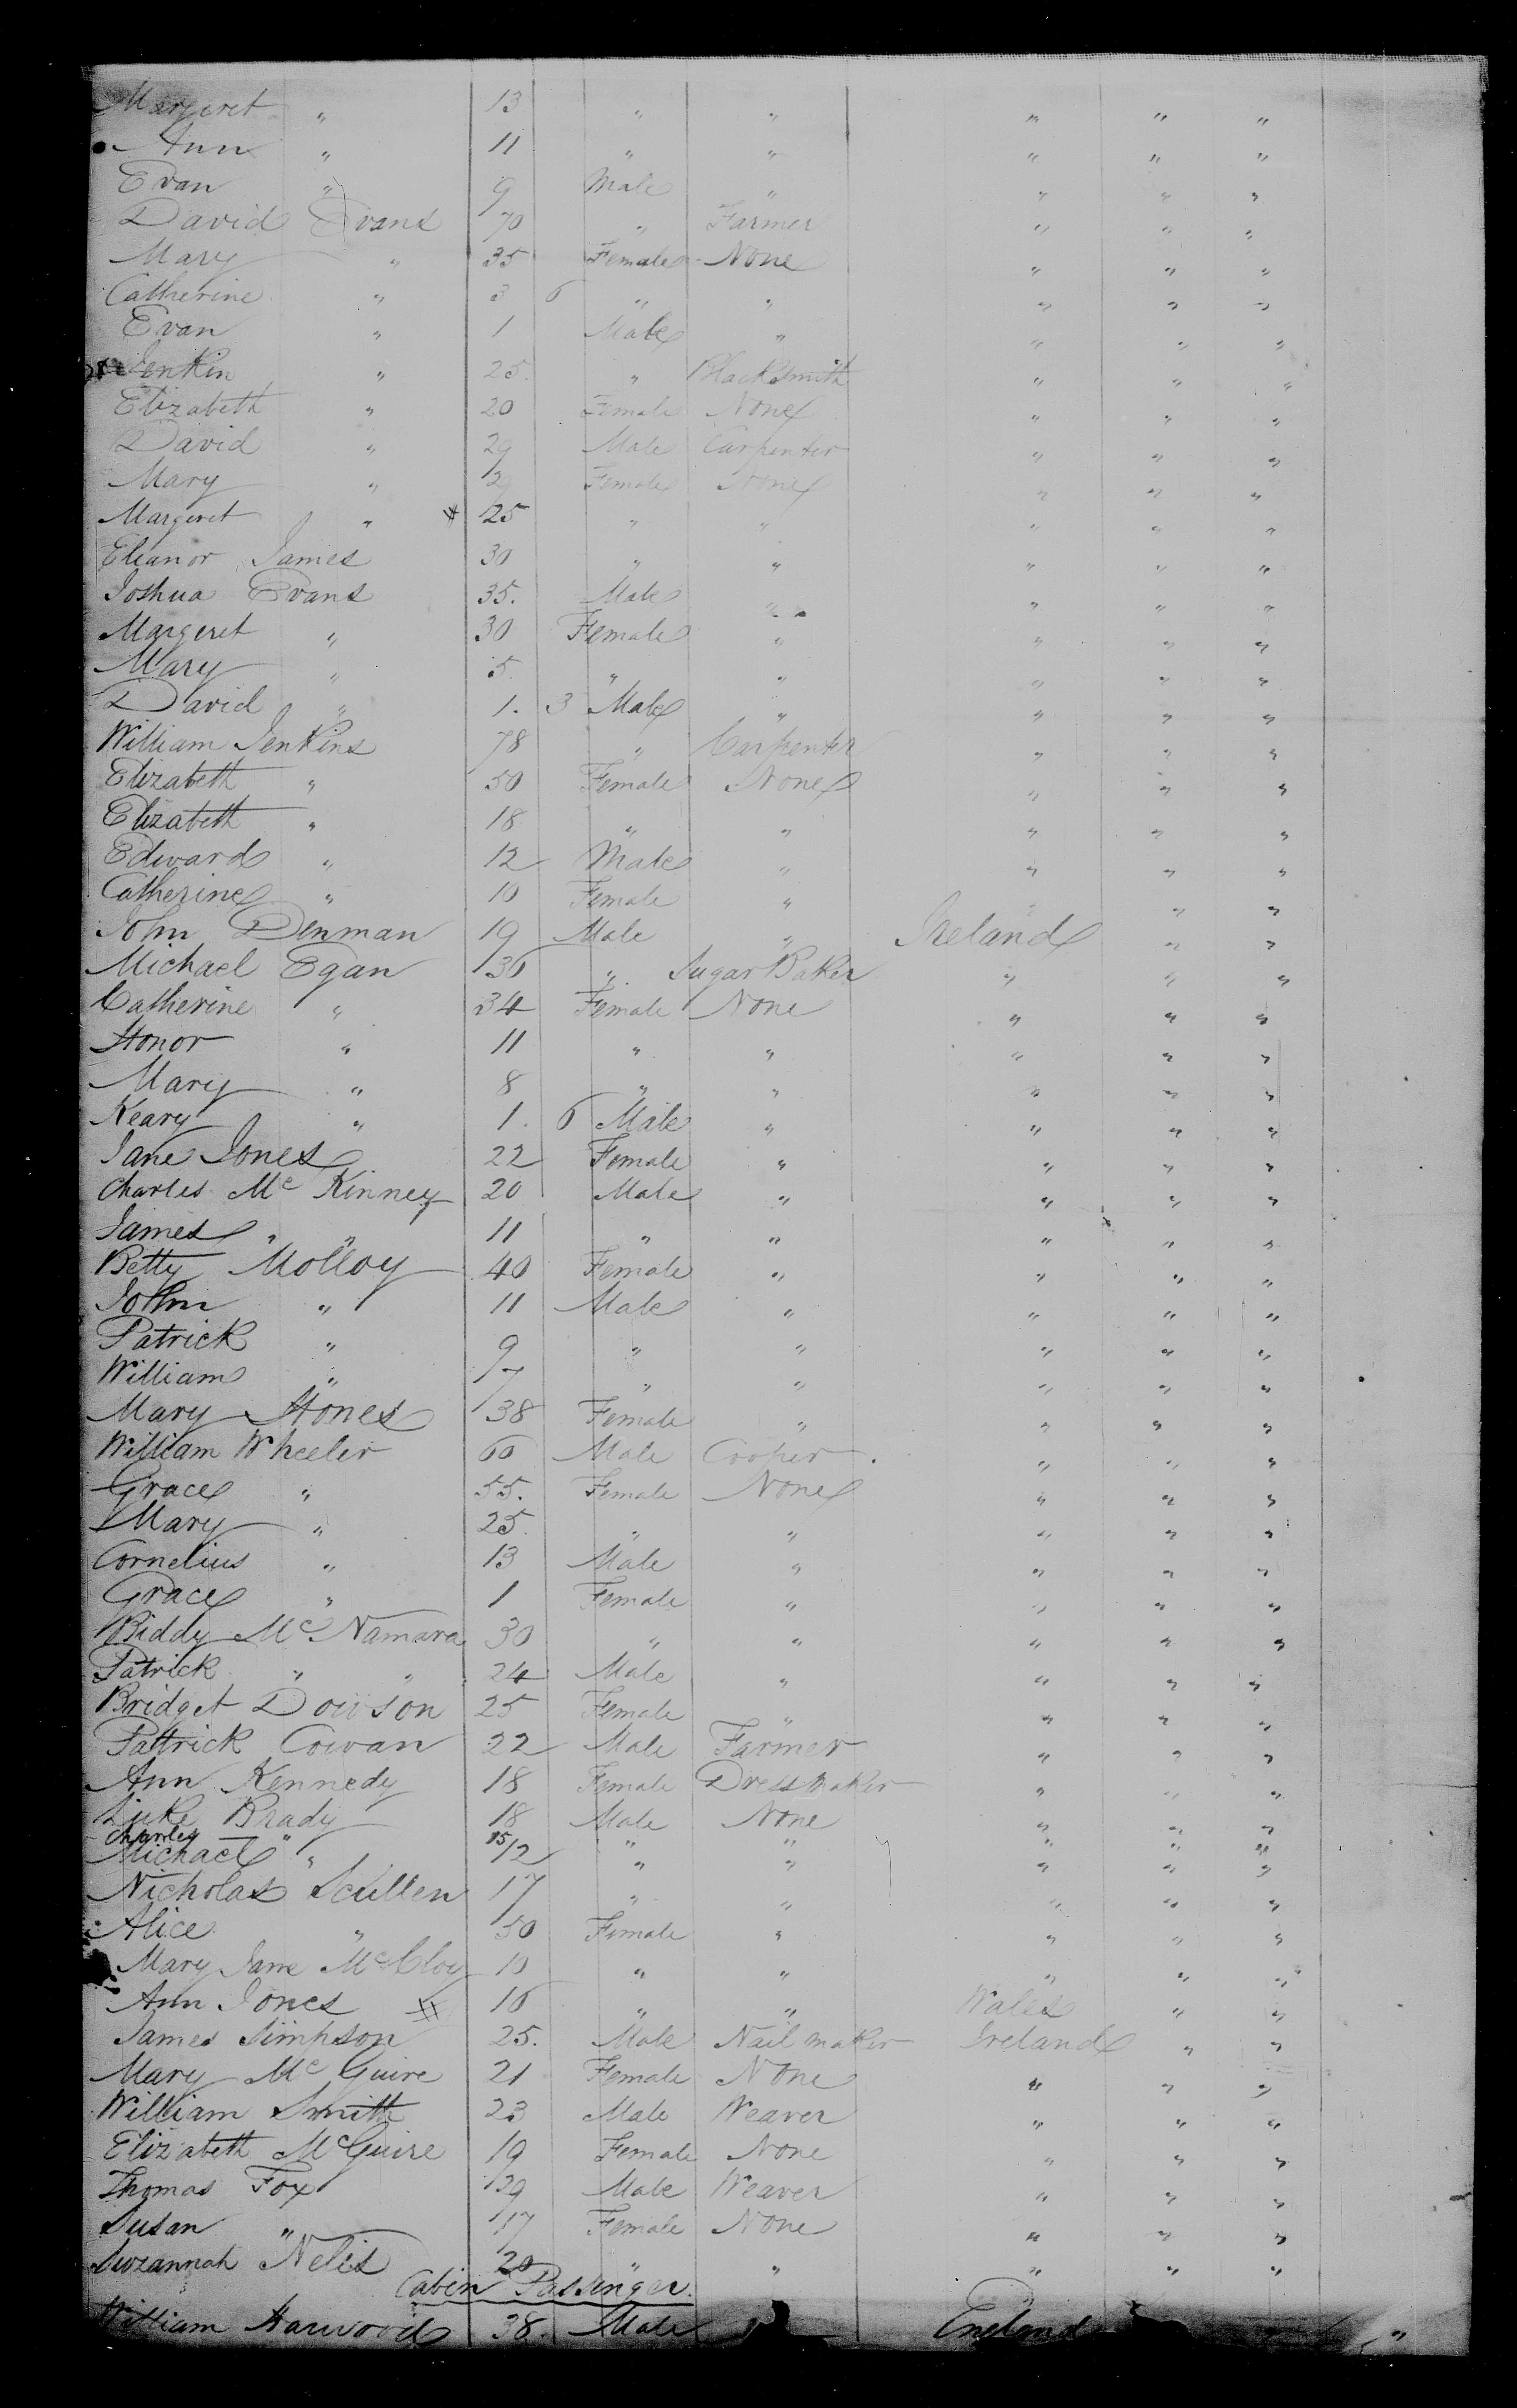 Margaret " 13 " " " " "
Ann " 11 " " " " "
Evan " 9 Male " " " "
David Evans 70 " Farmer " " "
Mary " 35 Female None " " "
Catherine " 3 6 " " " " "
Evan " 1 Male " " " "
Jenkin " 25 " Blacksmith " " "
Elizabeth " 20 Female None " " "
David " 29 Male Carpenter " " "
Mary " Female None " " "
Margeret " 25 " " " " "
Eleanor James 30 " " " " "
Joshua Evans 35. Male " " " "
Margeret " 30 Female " " " "
Mary " 5 " " " " "
David " 1. 3 Male " " " "
William Jenkins 78 " Carpenter " " "
Elizabeth " 50 Female None " " "
Elizabeth " 18 " " " " "
Edward " 12 Male " " " "
Catherine " 10 Female " " " "
John Denman 19 Male " Ireland " "
Michael Egan 36 " Sugar Baker " " "
Catherine " 34 Female None " " "
Honor " 11 " " " " "
Mary " 8 " " " " "
Keary " 1. 6 Male " " " "
Jane Jones 22 Female " " " "
Charles Mc Kinney 20 Male " " " "
James " " 11 " " " " "
Betty Molloy 40 Female " " " "
John " 11 Male " " " "
Patrick " 9 " " " " "
William " 7 " " " " "
Mary Hones 38 Female " " " "
William Wheeler 60 Male Cooper " " "
Grace " 55. Female None " " "
Mary " 25. " " " " "
Cornelius " 13 Male " " " "
Grace " 1 Female " " " "
Biddy Mc Namara 30 " " " " "
Patrick " " 24 Male " " " "
Bridget Dowson 25 Female " " " "
Pattrick Cowan 22 Male Farmer " " "
Ann Kennedy 18 Female Dress maker " " "
Luke Brady 18 Male None " " "
Charles " 15 " " " " "
Michael " 12 " " " " "
Nicholas Scullen 17 " " " " "
Alice " 50 Female " " " "
Mary Jane McCloy 10 " " " " "
Ann Jones 16 " " Wales " "
James Simpson 25. Male Nail maker Ireland " "
Mary Mc Guire 21 Female None " " "
William Smith 23 Male Weaver " " "
Elizabeth McGuire 19 Female None " " "
Thomas Fox 29 Male Weaver " " "
Susan " 17 Female None " " "
Suzannah Nelis 20 " " " " "
Cabin Passenger.
William Harwood 38. Male England "